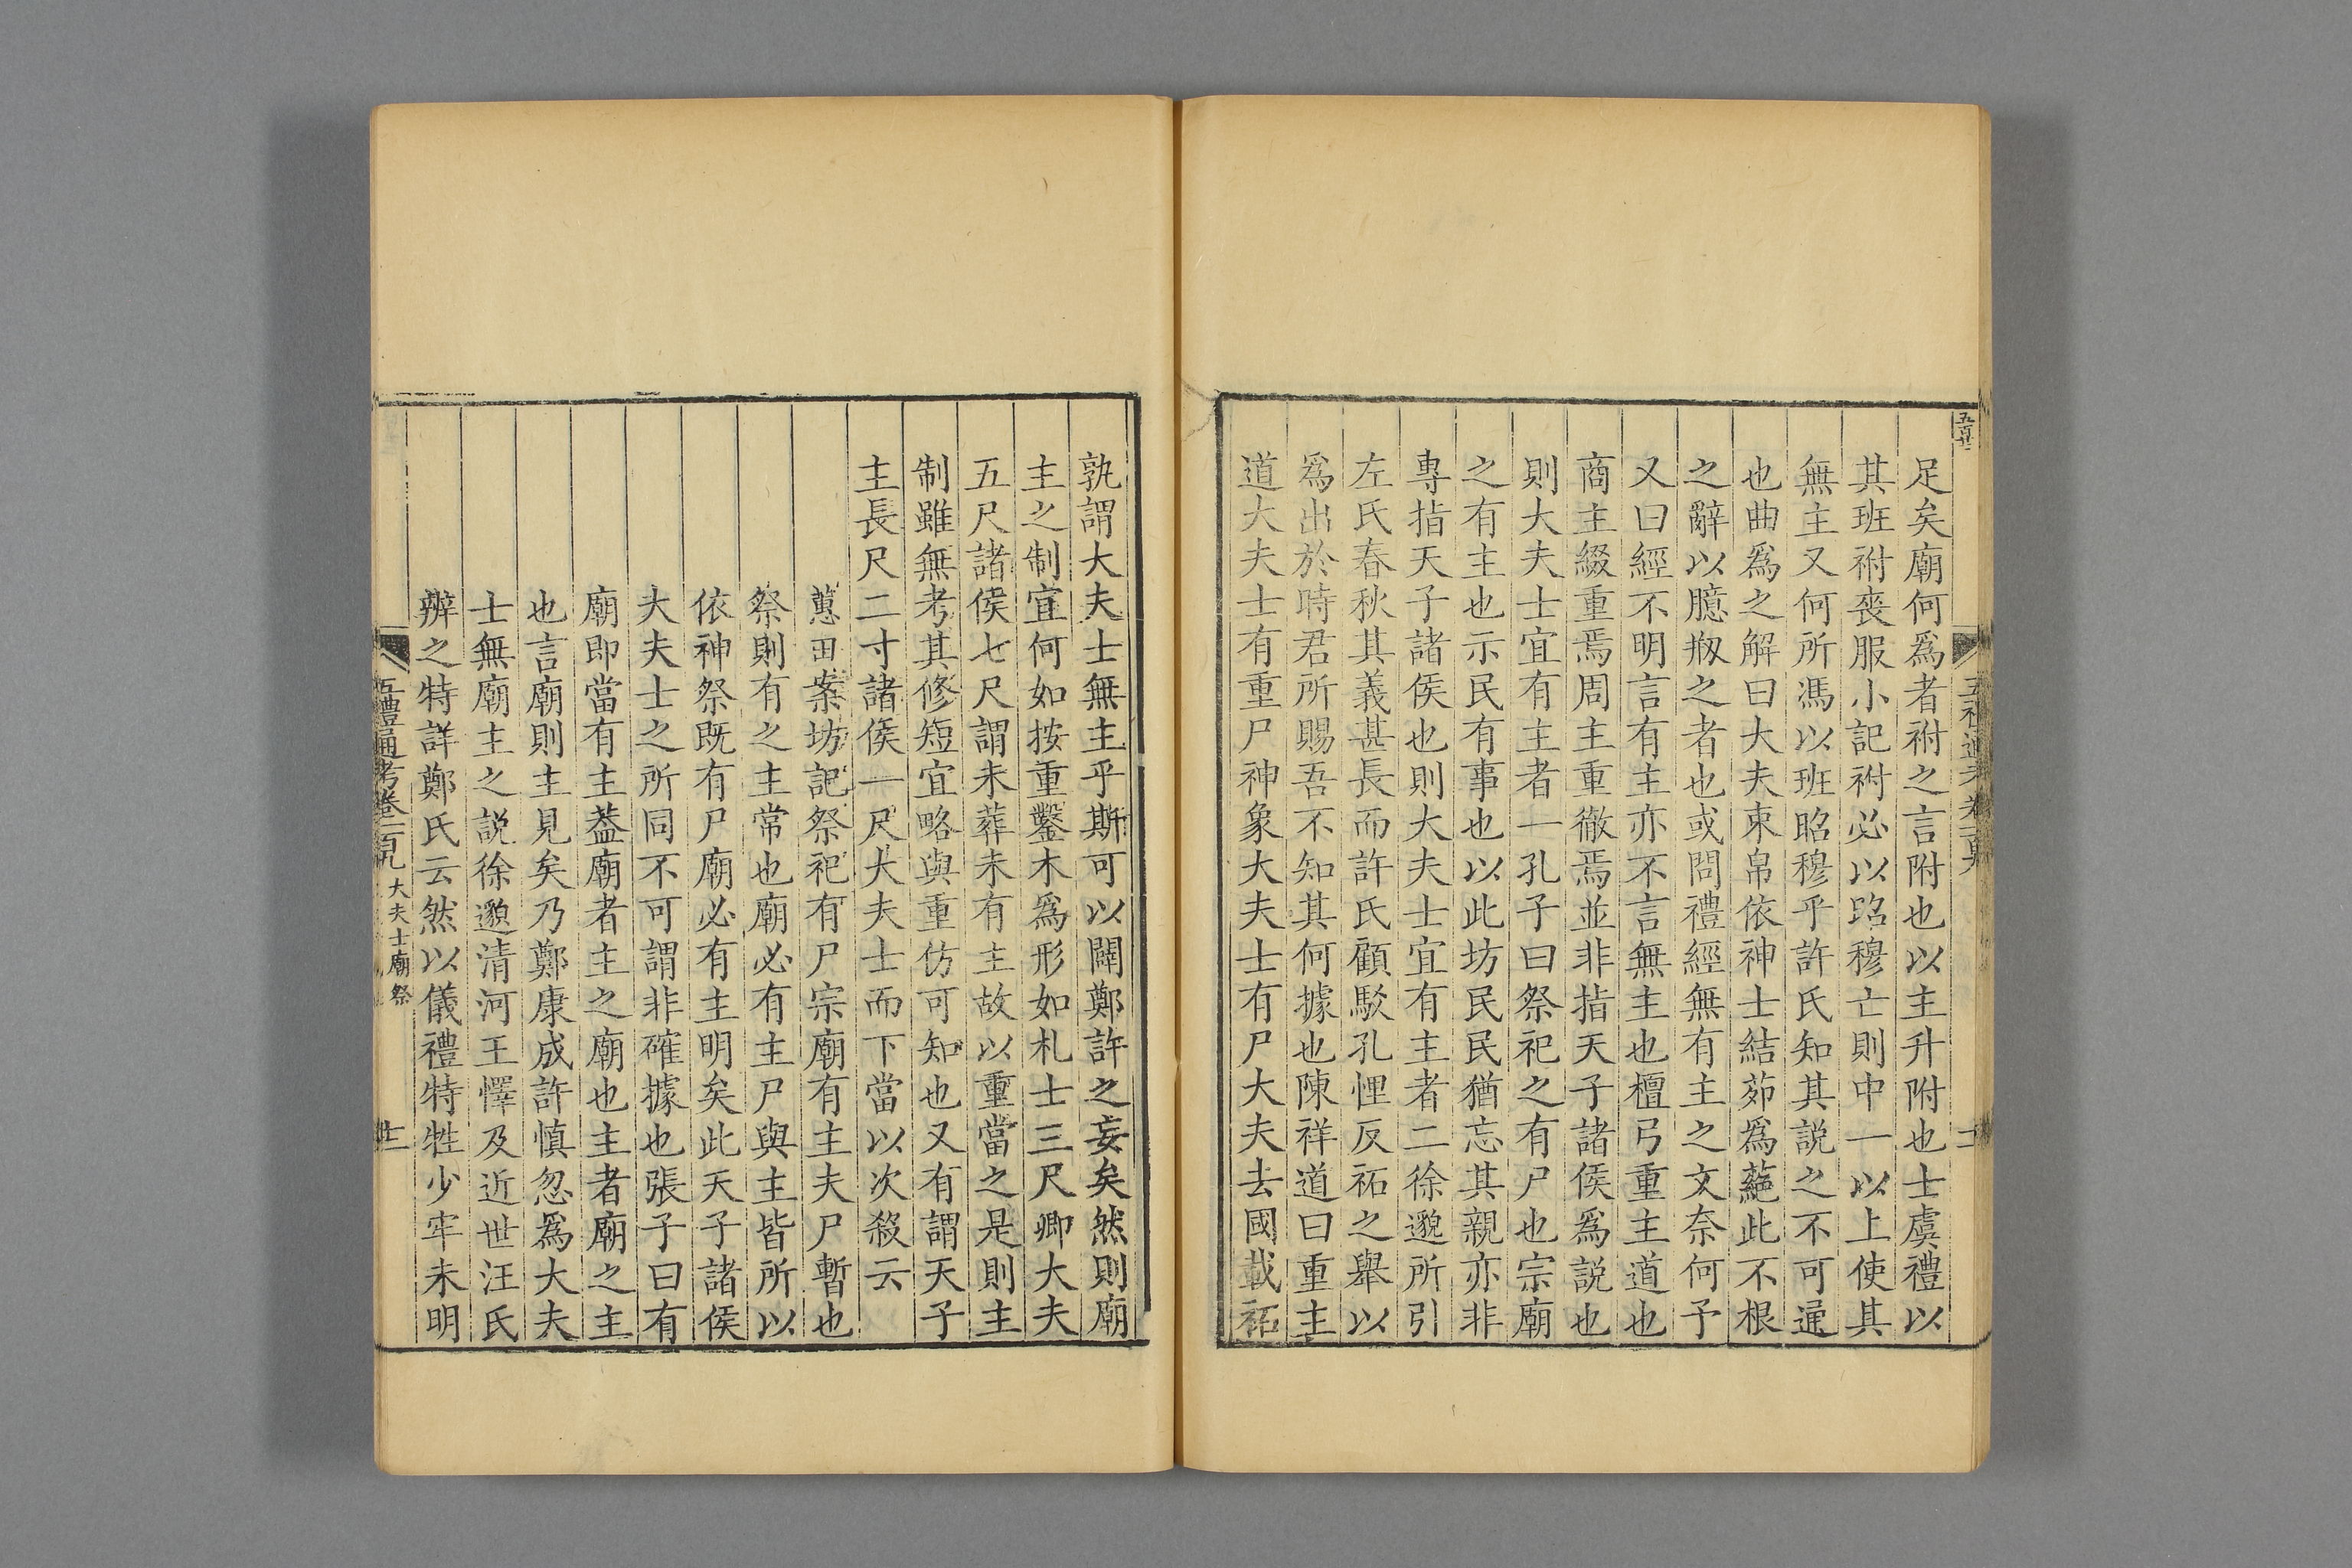 足矣廟何爲者祔之言附也以主升附也士虞禮以
其班祔喪服小記祔必以昭穆亡則中一以上使其
無主又何所馮以班昭穆乎許氏知其説之不可通
也曲爲之解曰大夫束帛依神士結茆爲蕝此不根
之辭以臆剏之者也或問禮經無有主之文奈何予
又曰經不明言有主亦不言無主也檀弓重主道也
商主綴重焉周主重徹焉並非指天子諸侯爲説也
則大夫士宜有主者一孔子曰祭祀之有尸也宗廟
之有主也示民有事也以此坊民民猶忘其親亦非
專指天子諸侯也則大夫士宜有主者二徐邈所引
左氏春秋其義甚長而許氏顧駁孔悝反祏之舉以
爲出於時君所賜吾不知其何據也陳祥道曰重主
道大夫士有重尸神象大夫士有尸大夫去國載祏
孰謂大夫士無主乎斯可以闢鄭許之妄矣然則廟
主之制宜何如按重鑿木爲形如札士三尺卿大夫
五尺諸侯七尺謂未葬未有主故以重當之是則主
制雖無考其修短宜略與重仿可知也又有謂天子
主長尺二寸諸侯一尺大夫士而下當以次殺云
蕙田案坊記祭祀有尸宗廟有主夫尸暫也
祭則有之主常也廟必有主尸與主皆所以
依神祭既有尸廟必有主明矣此天子諸侯
大夫士之所同不可謂非確據也張子曰有
廟即當有主葢廟者主之廟也主者廟之主
也言廟則主見矣乃鄭康成許慎忽爲大夫
士無廟主之説徐邈清河王懌及近世汪氏
辨之特詳鄭氏云然以儀禮特牲少牢未明
五禮通考卷一百九 大夫士廟祭